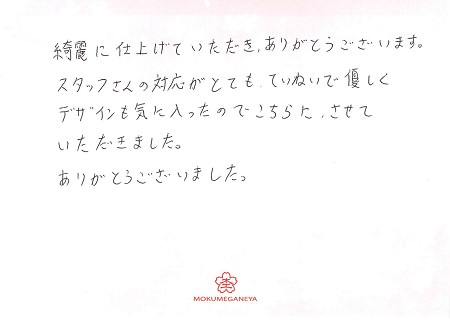 綺麗に仕上げていただき、ありがとうございます。
スタッフさんの対応がとても、ていねいで優しく
デザインも気に入ったのでこちらに、させて
いただきました。
ありがとうございました。
MOKUMEGANEYA